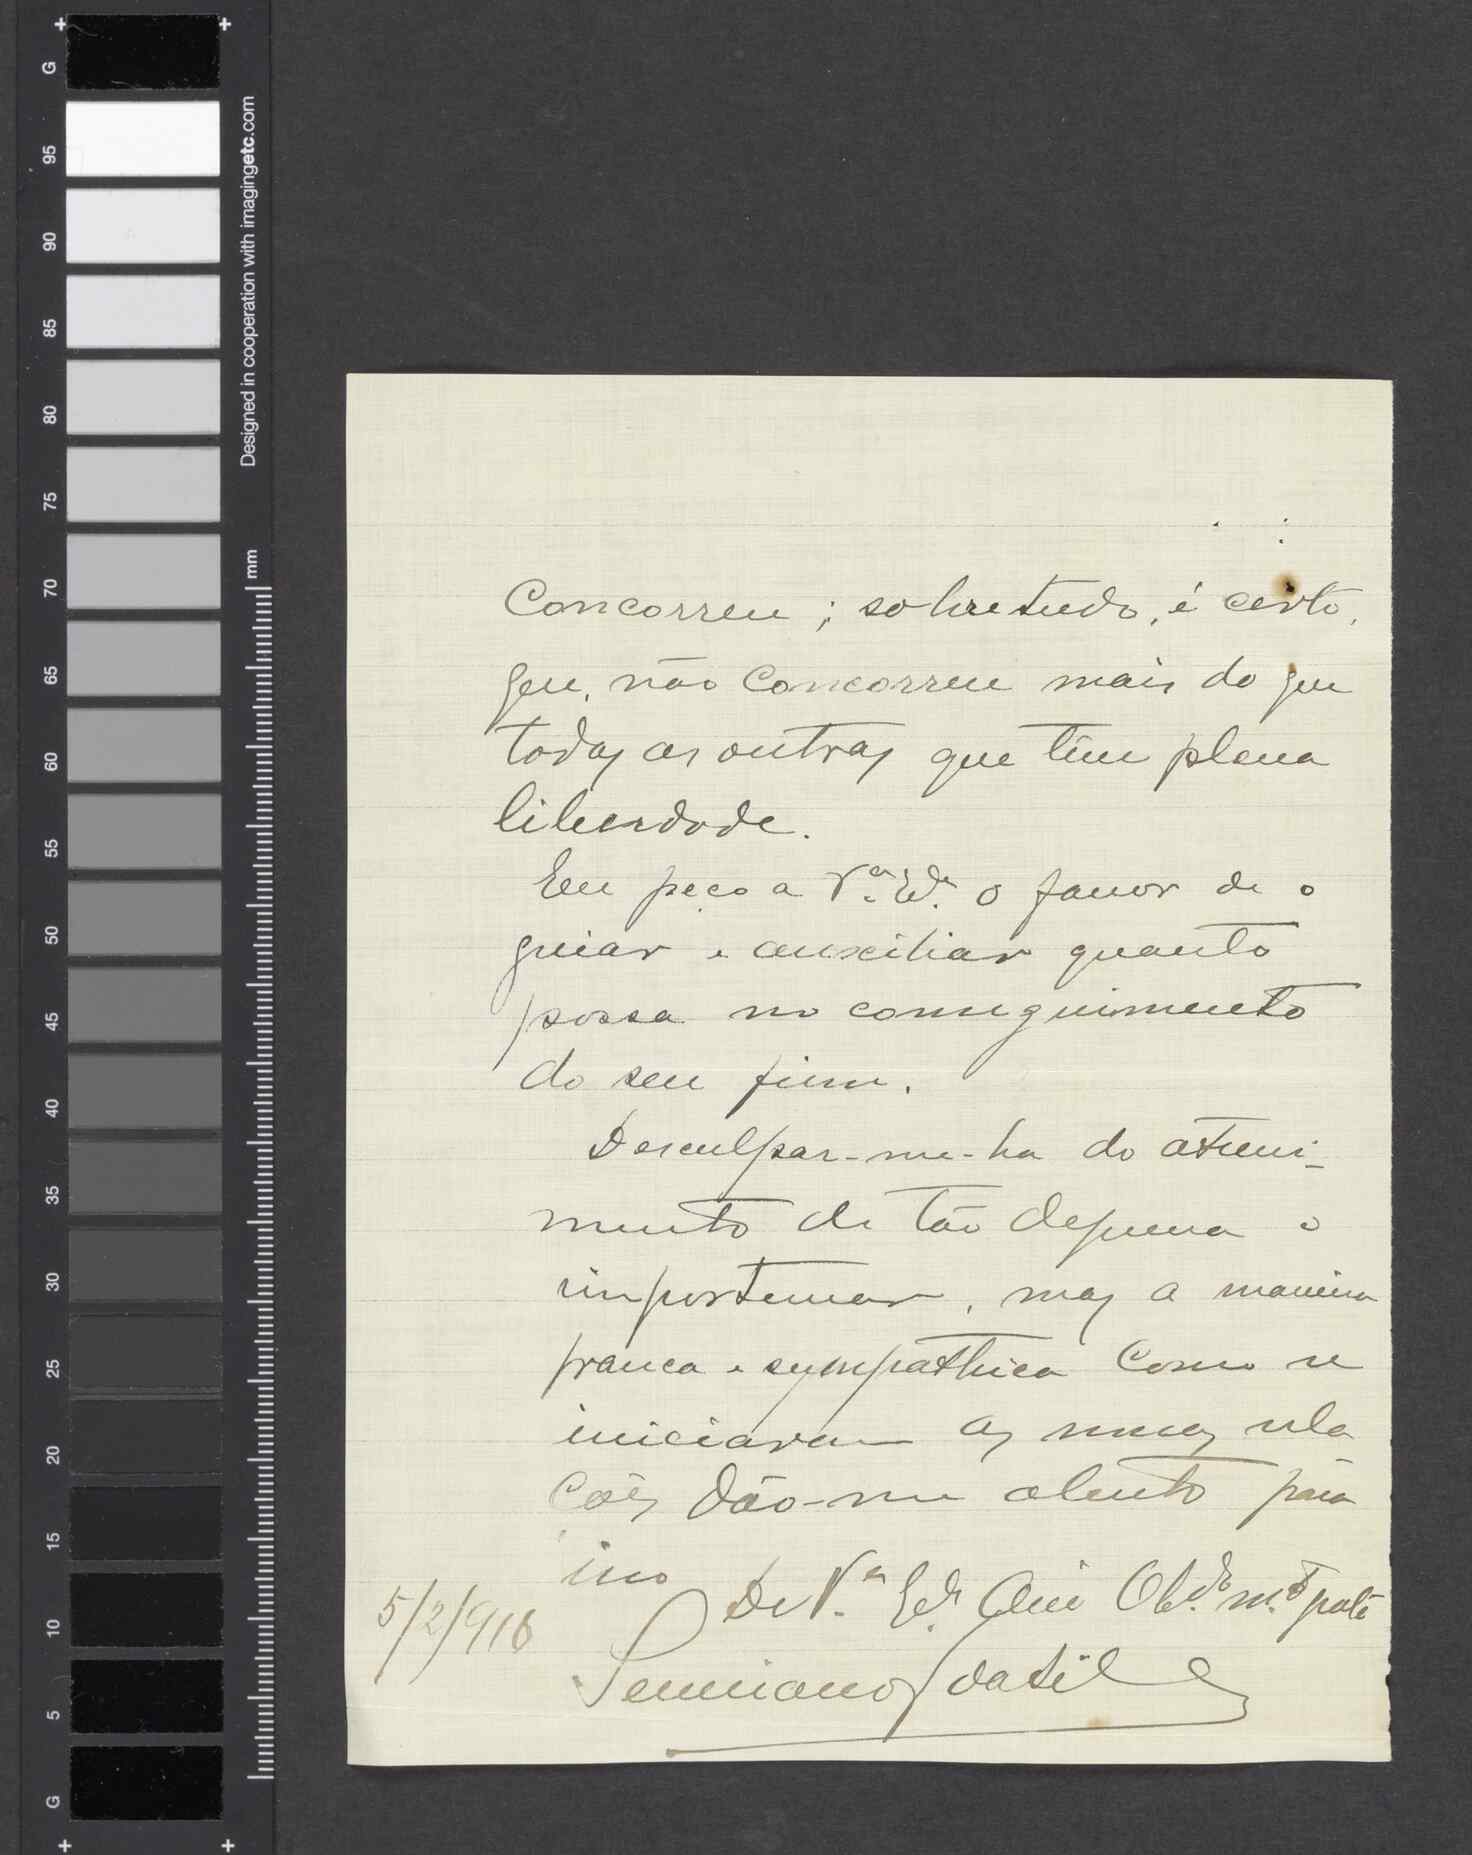 G
95
90
85
80
75
70
65
60
55
50
45
40
35
30
25
20
15
10
5
G
Designed in cooperation with imagingetc.com
mm
Concorreu; sobretudo, é certo,
que, não concorreu mais do que
todas as outras que têm plena
liberdade.
Eu peço a V.ª Ex.ª o favor de o
guiar e auxiliar quanto
possa no conseguimento
do seu fim.
Desculpar-me-ha do atrevi-
mento de tão depressa o
importunar, mas a maneira
franca e sympathica como se
iniciaram as nossas rela
ções dão-me alento para
isso
De V.ª Ex.ª Am.º Obd.º m.to grato
5/2/916
da Silva